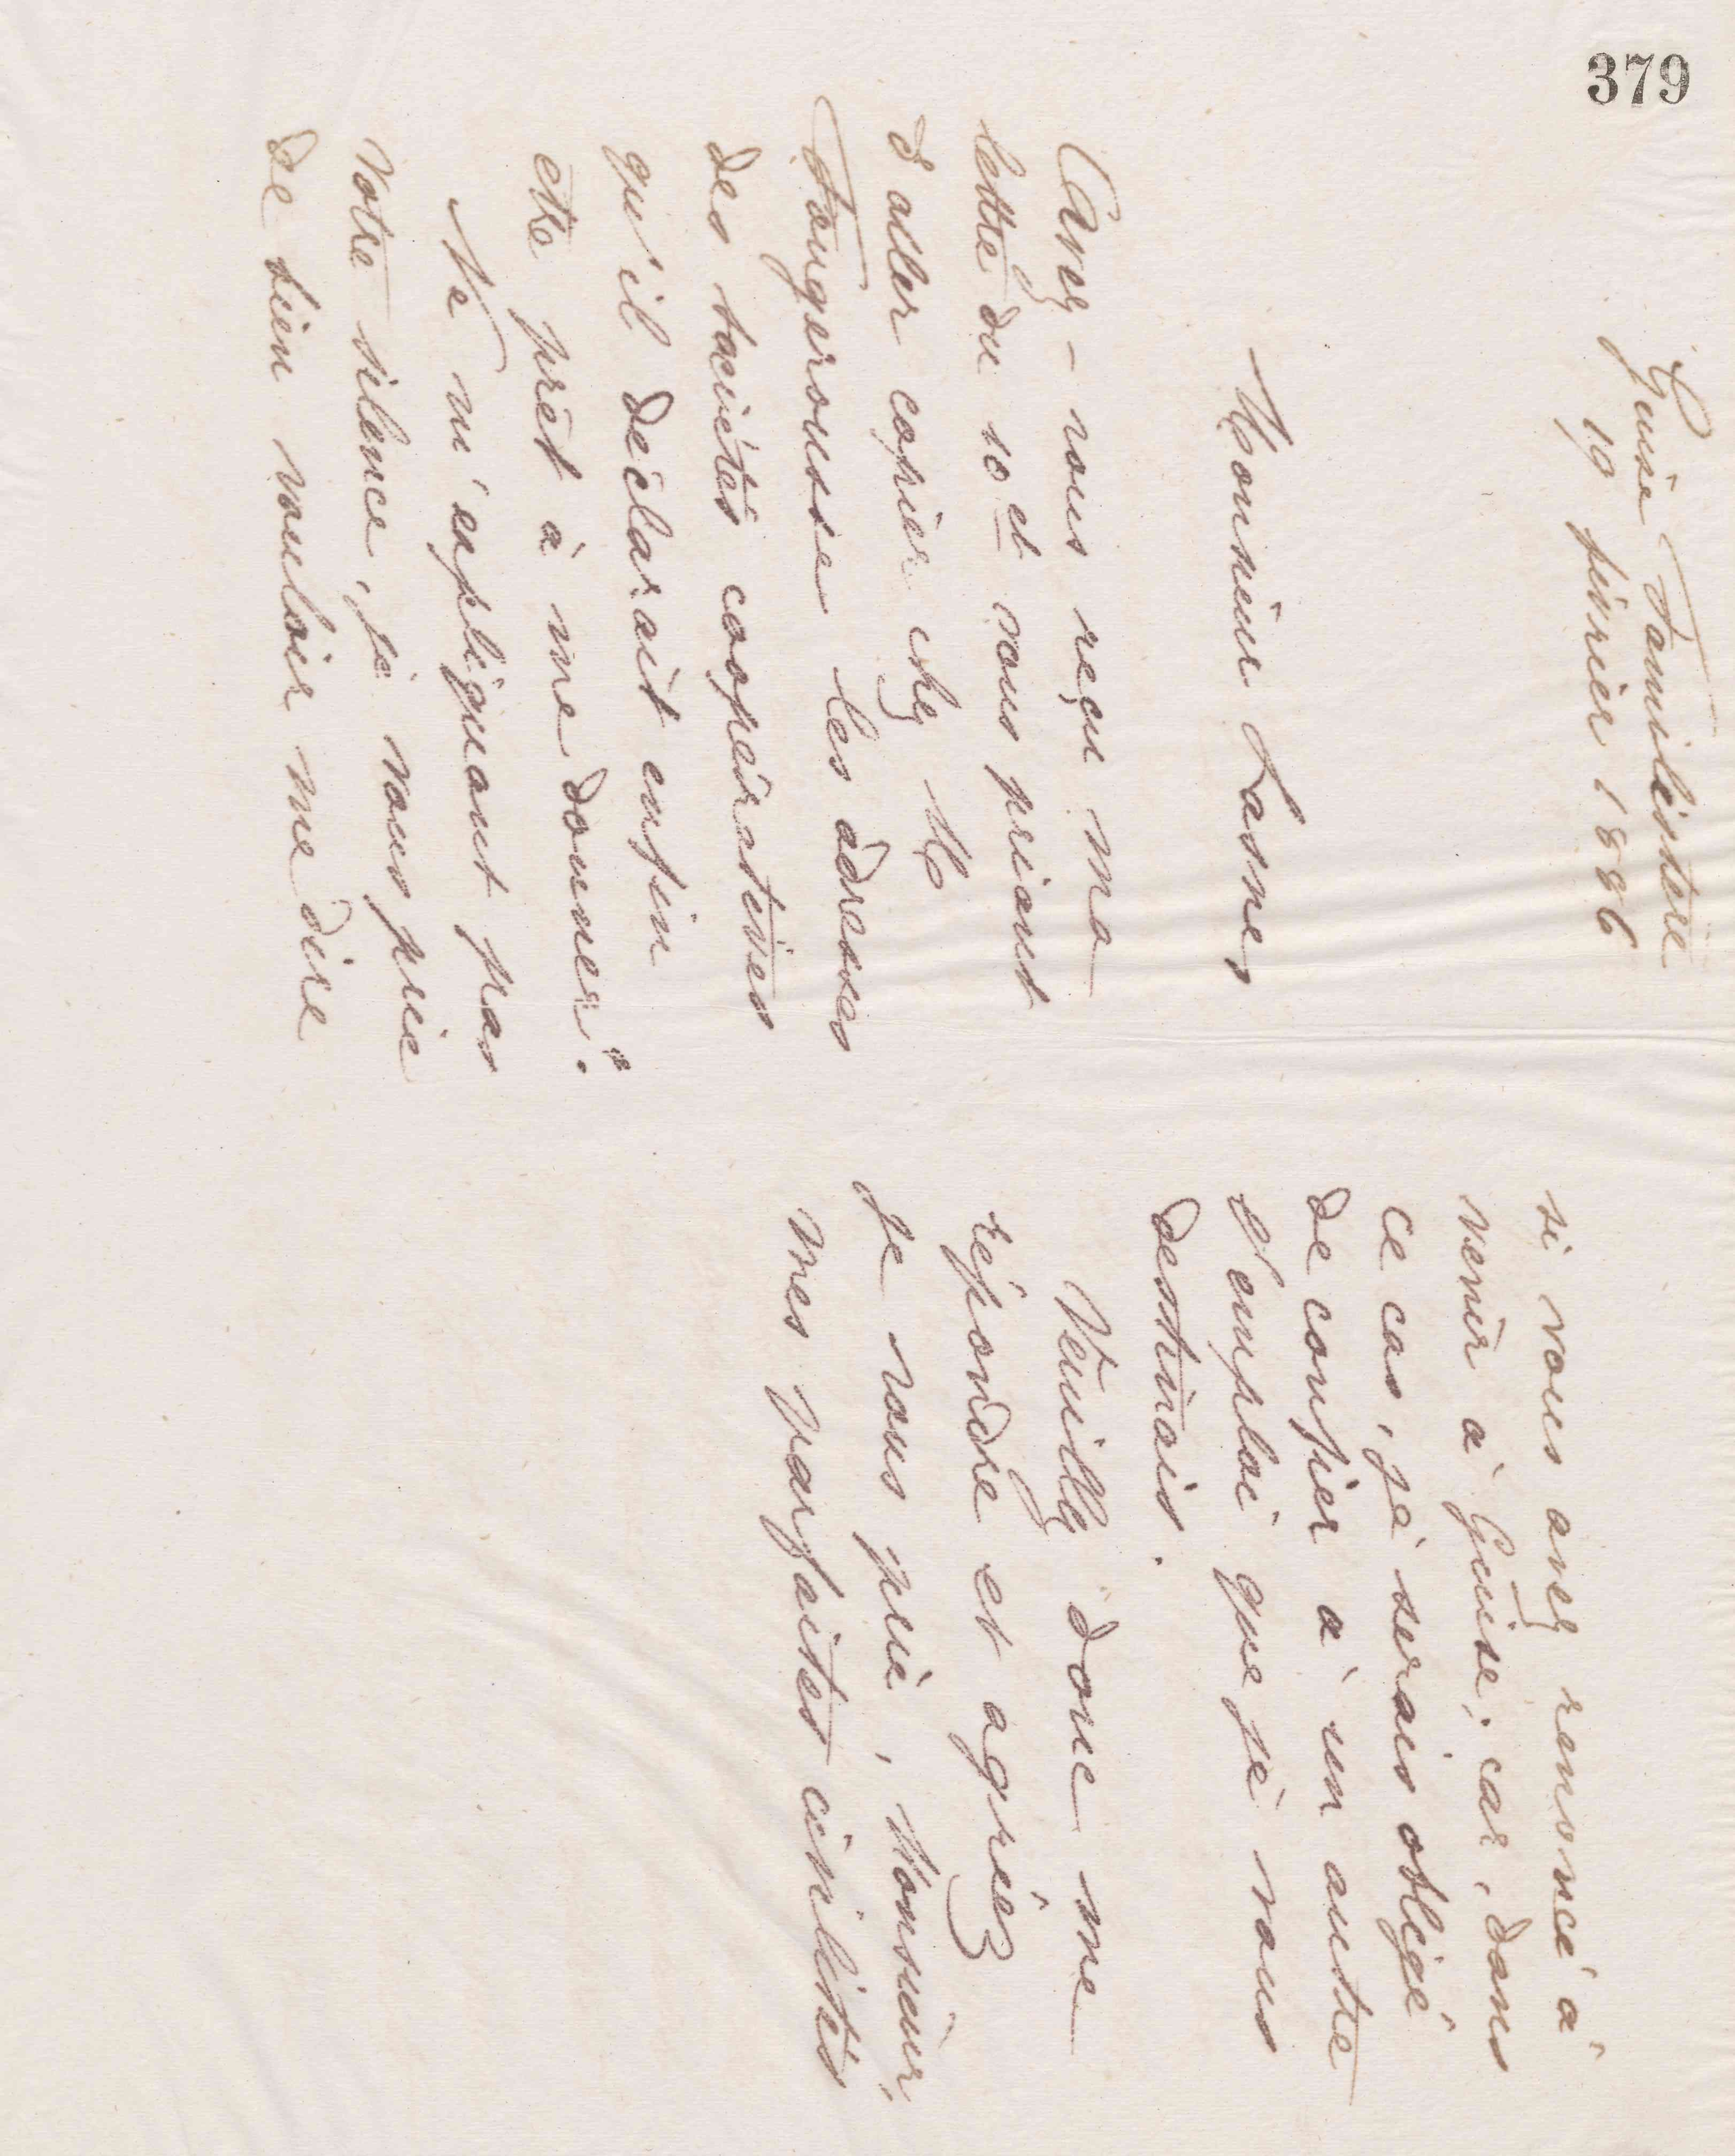 379
Guise Familistère
19 février 1886
Monsieur Lasnes
Avez-vous reçu ma
lettre du 10 et vous priant
d'aller copier chez M
Fougerousse les adresses
des sociétés coopératives
qu'il déclarait enfin
etre prêt à me donner?
Ne m'expliquant pas
votre silence, je vous prie
de bien vouloir me dire
si vous avez renoncé à
venir à Guise; car, dans
ce cas, je serais obligé
de confier à un autre
l'emploi que je vous
destinais.
Veuillez donc me
répondre et agréez
je vous prie, Monsieur,
mes parfaites civilités